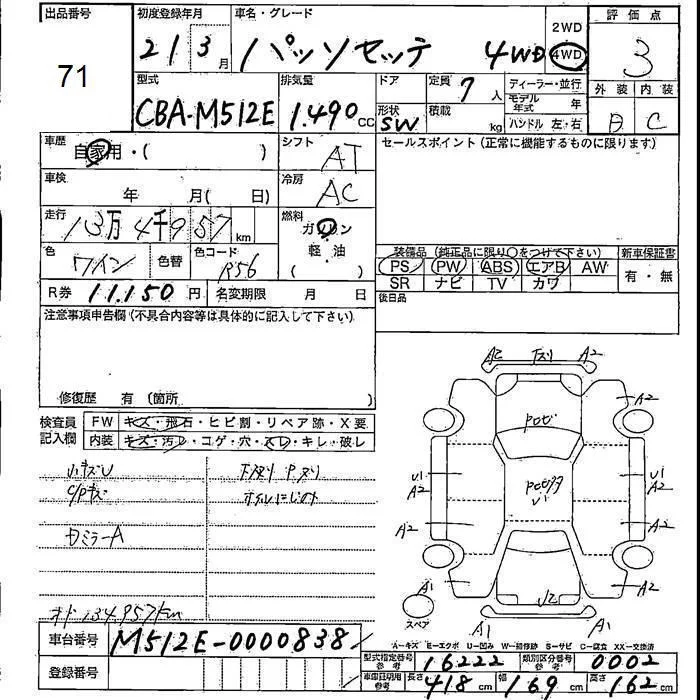 出品番号 初度登録年月 車名・グレード 2WD 評価点
71 21 3月 パッソセッテ 4WD 4WD 3
型式 排気量 ドア 定員 7人 ディーラー・並行 外装 内装
CBA-M512E 1.490cc 形状 SW 積載 kg モデル年式 年 B C
ハンドル 左・右
車歴 自家用・( ) シフト AT セールスポイント(正常に機能するものに限ります)
車検 年 月(日) 冷房 AC
走行 13万4千957km 燃料 ガソリン
軽油
( )
色 ワイン 色替 色コード R56 装備品(純正品に限り○をつけて下さい) 新車保証書
PS PW ABS エアB AW 有・無
SR ナビ TV カワ
R券 11.150円 名変期限 月 日 後日品
注意事項申告欄(不具合内容等は具体的に記入して下さい)
修復歴 有(箇所 )
検査員記入欄 FW キズ・飛石・ヒビ割・リペア跡・X要
内装 キズ・汚レ・コゲ・穴・スレ・キレ・破レ
小キズU 下スリ Pスリ
C/Pキズ オイルにじみ
ミラーA
オド134.957km
A2 下スリ A2
A2
U1
A2
U1
A2
A2 A2
A1 A2
スペア A1 A1
A-キズ E-エクボ U-凹み W-補修跡 S-サビ C-腐食 XX-交換済
車台番号 M512E-0000838
登録番号
型式指定番号参考 16222 類別区分番号参考 0002
車庫証明用参考 長さ 418cm 幅 169cm 高さ 162cm